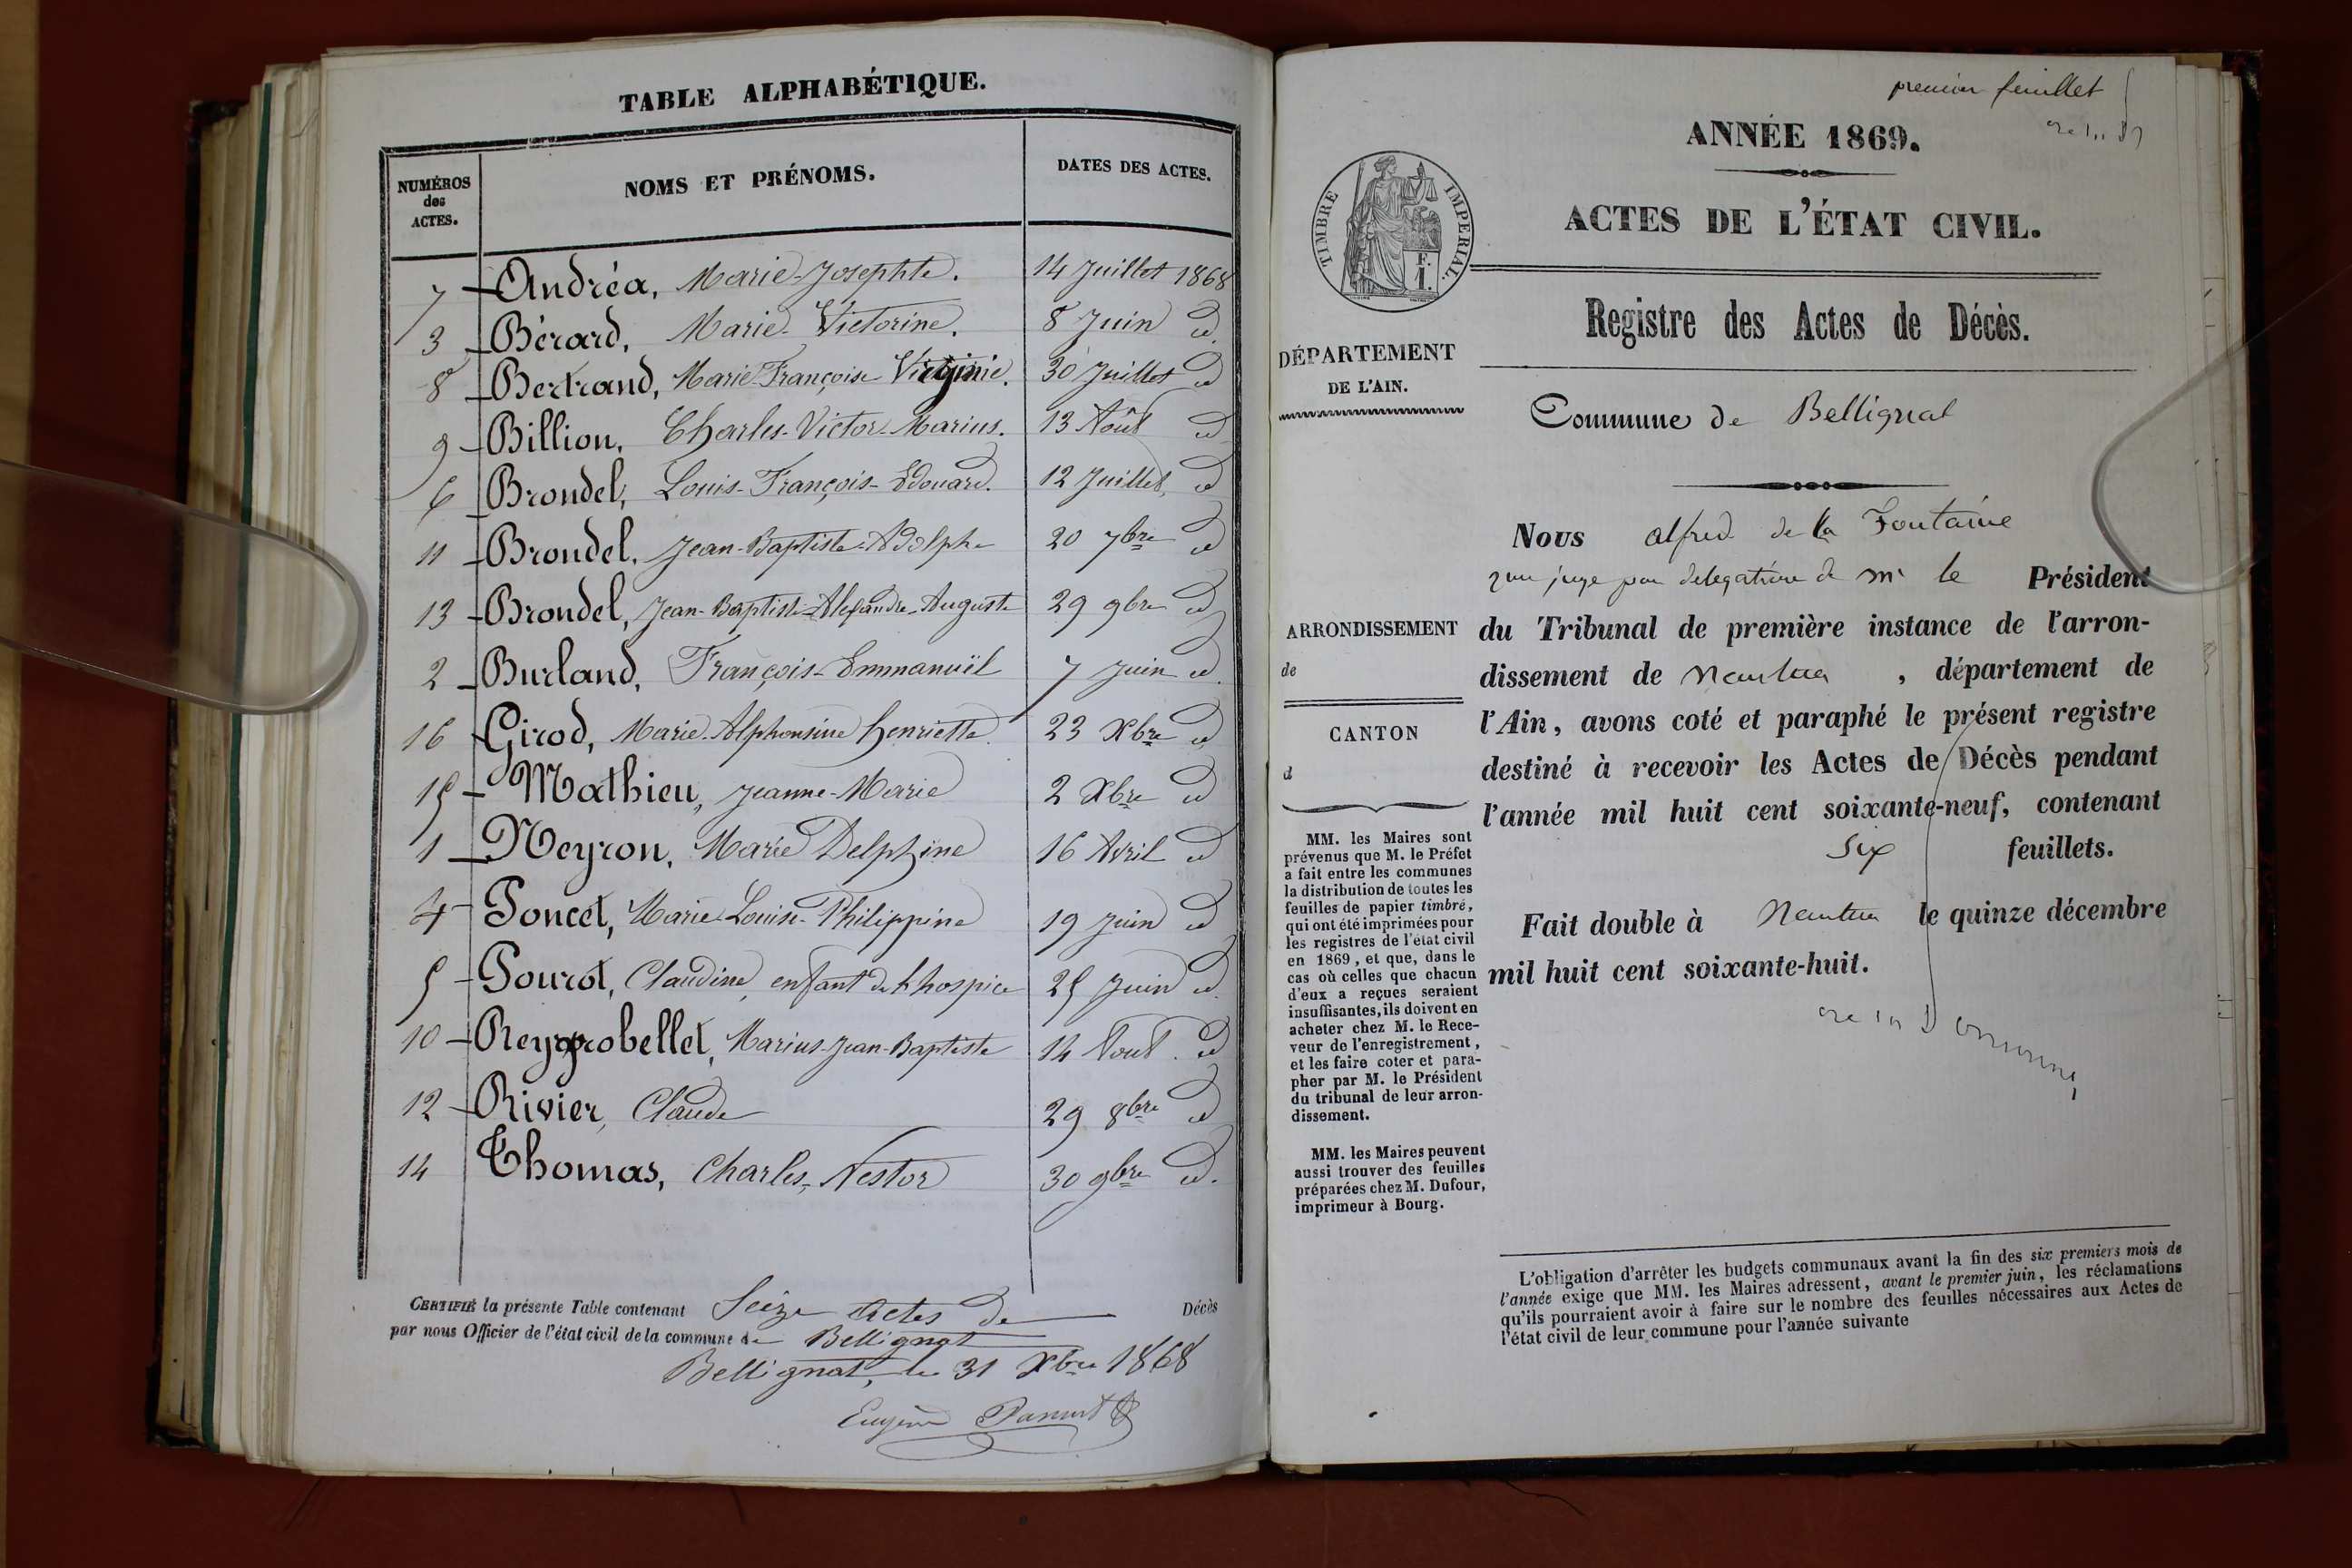 TABLE ALPHABÉTIQUE.
NUMÉROS des ACTES. NOMS ET PRÉNOMS. DATES DES ACTES.
7 Andréa, Marie-Josephte. 14 Juillet 1868
3 Bérard, Marie-Victorine. 8 Juin id.
8 Bertrand, Marie-Françoise Virginie. 30 Juillet id
9 Billion, Charles-Victor-Marius. 13 Août id
6 Brondel, Louis-François-Edouard. 12 Juillet, id
11 Brondel, Jean-Baptiste-Adolphe 20 7bre id
13 Brondel, Jean-Baptiste-Alexandre-Auguste 29 9bre id
2 Burland, François-Emmanuël 7 Juin id.
16 Girod, Marie-Alphonsine henriette 23 Xbre id
15 Mathieu, Jeanne-Marie 2 Xbre id
1 Neyron, Marie Delphine 16 Avril id
4 Poncet, Marie-Louise-Philippine 19 Juin id
5 Pourot, Claudine, enfant de l'hospice 25 Juin id.
10 Reygrobellet, Marius-Jean-Baptiste 14 Aout. id
12 Rivier, Claude 29 8bre id
14 Thomas, Charles, Nestor 30 9bre id.
CERTIFIÉ la présente Table contenant Seize Actes de Décès
par nous Officier de l'état civil de la commune de Bellignat
Bellignat, le 31 Xbre 1868
Eugène
premier feuillet
ANNÉE 1869.
ACTES DE L'ÉTAT CIVIL.
TIMBRE IMPERIAL.
F.
1.
Registre des Actes de Décès.
DÉPARTEMENT
DE L'AIN.
Commune de Bellignat
Nous alfred de la Fontaine
juge par délégation de Mr le Président
du Tribunal de première instance de l'arron-
dissement de Nantua, département de
l'Ain, avons coté et paraphé le présent registre
destiné à recevoir les Actes de Décès pendant
l'année mil huit cent soixante-neuf, contenant
six feuillets.
Fait double à Nantua le quinze décembre
mil huit cent soixante-huit.
ARRONDISSEMENT
de
CANTON
d
MM. les Maires sont
prévenus que M. le Préfet
a fait entre les communes
la distribution de toutes les
feuilles de papier timbré,
qui ont été imprimées pour
les registres de l'état civil
en 1869, et que, dans le
cas où celles que chacun
d'eux a reçues seraient
insuffisantes, ils doivent en
acheter chez M. le Rece-
veur de l'enregistrement,
et les faire coter et para-
pher par M. le Président
du tribunal de leur arron-
dissement.
MM. les Maires peuvent
aussi trouver des feuilles
préparées chez M. Dufour,
imprimeur à Bourg.
L'obligation d'arrêter les budgets communaux avant la fin des six premiers mois de
l'année exige que MM. les Maires adressent, avant le premier juin, les réclamations
qu'ils pourraient avoir à faire sur le nombre des feuilles nécessaires aux Actes de
l'état civil de leur commune pour l'année suivante